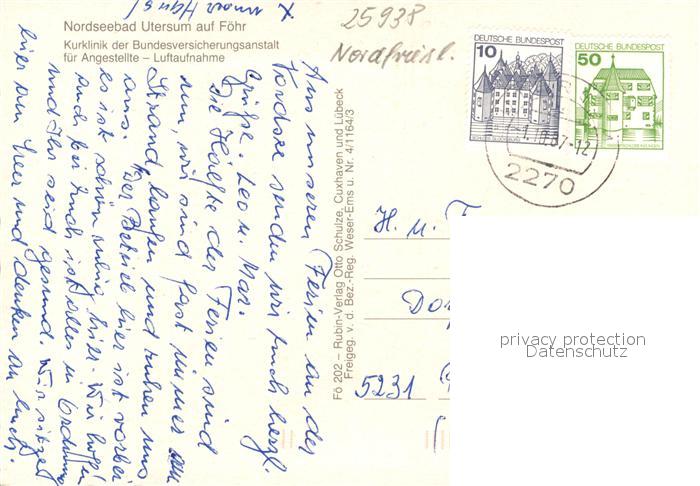 x unser Haus!
25938
Nordfriesl.
Nordseebad Utersum auf Föhr
Kurklinik der Bundesversicherungsanstalt
für Angestellte – Luftaufnahme
Aus unseren Ferien an der
Nordsee senden wir Euch herzl.
Grüße. Leo u. Mar.
Die Hälfte der Ferien sind
um, wir sind fast immer am
Strand, laufen und ruhen uns
aus. Der Betrieb hier ist vorbei
es ist schön ruhig hier. Wir hoffen
und bei Euch ist alles in Ordnung
und Ihr seid gesund. Wir sitzen
hier am Meer und denken an Euch.
Fö 202 – Rubin-Verlag Otto Schulze, Cuxhaven und Lübeck
Freigeg. v. d. Bez.-Reg. Weser-Ems u. Nr. 4/1164/3
DEUTSCHE BUNDESPOST
10
DEUTSCHE BUNDESPOST
50
2270
H. u. F
Do
5231
privacy protection
Datenschutz